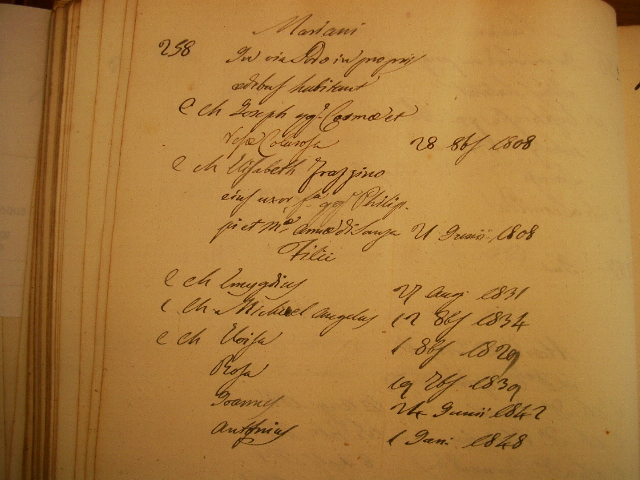 Mariani
258 In via Dodo in proprijs
ædibus habitant
C ch Joseph qq. Cosmæ et
Colarossa 28 8bs 1808
C ch Elisabeth Frazzino
eius uxor fa. qq. Philip-
pi et Mæ Annæ di Sanza 21 Junii 1808
Filii
C ch Emygdius 27 Aug 1831
C Ch Michael Angelus 12 8bs 1834
C ch Eloisa 1 8bs 1829
Rosa 19 7bs 1839
Joannes 24 Junii 1842
Antonius 1 Jan: 1848